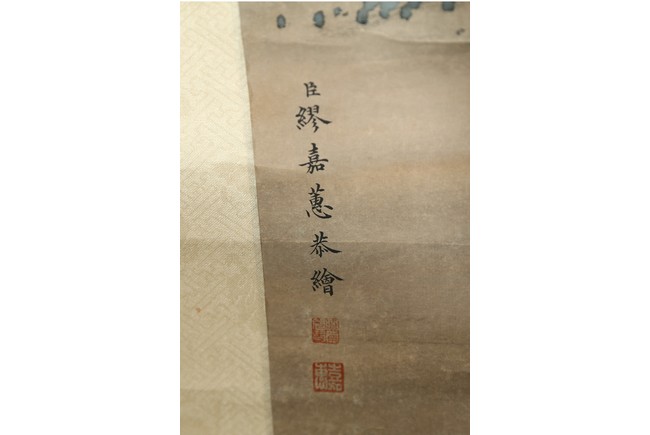 臣繆嘉蕙恭繪